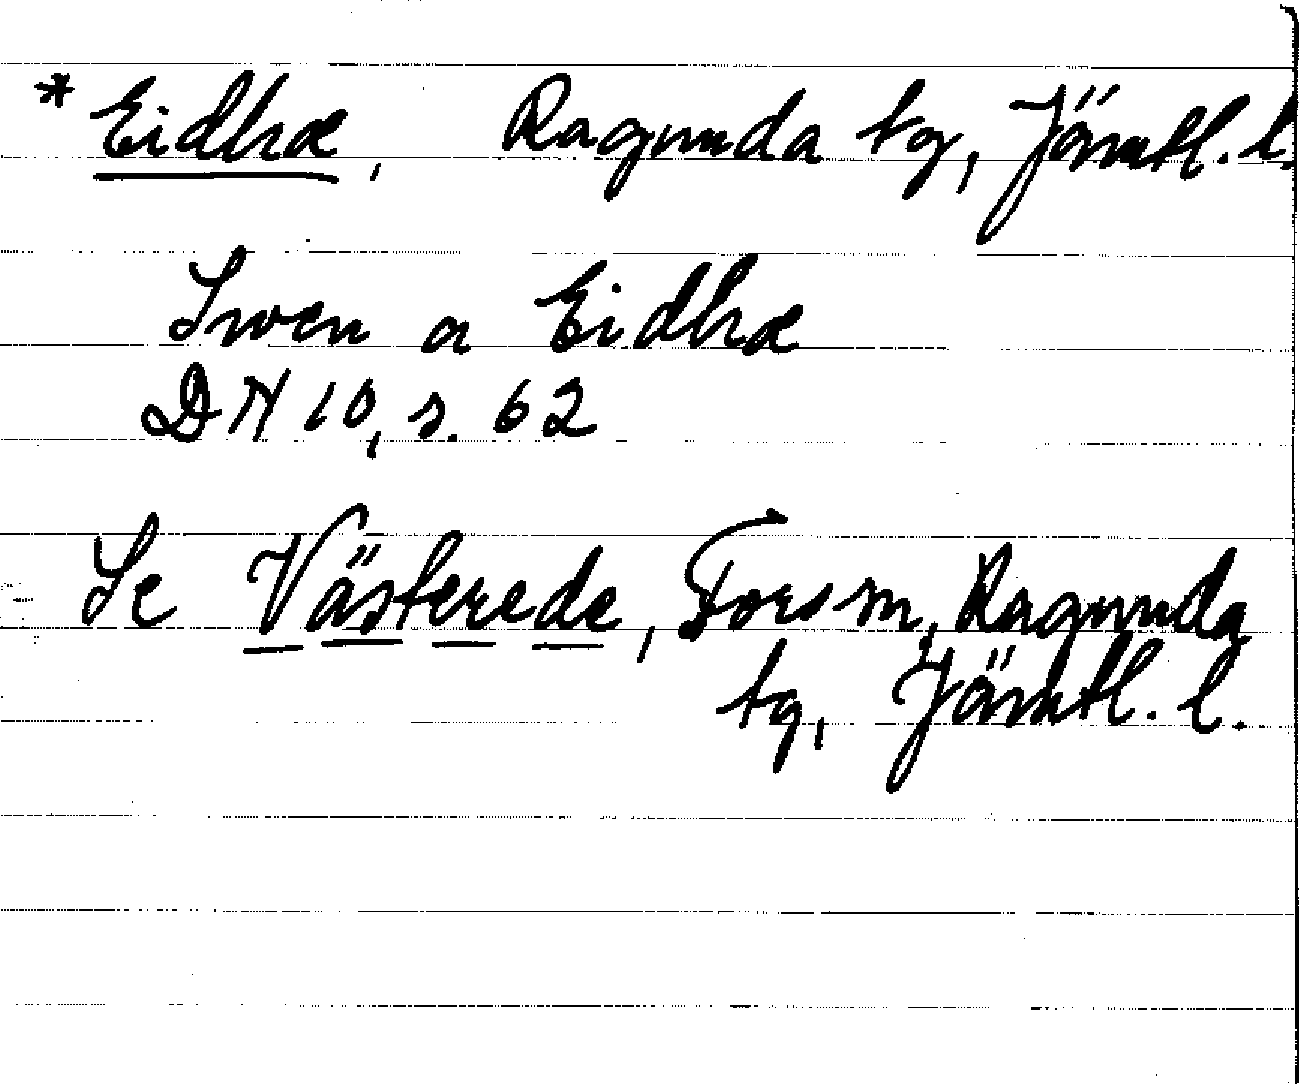 * Eidhæ, Ragunda tg, Jämtl. l.
Swen a Eidhæ
DN 10, s. 62
Se Västerede, Fors sn, Ragunda
tg, Jämtl. l.